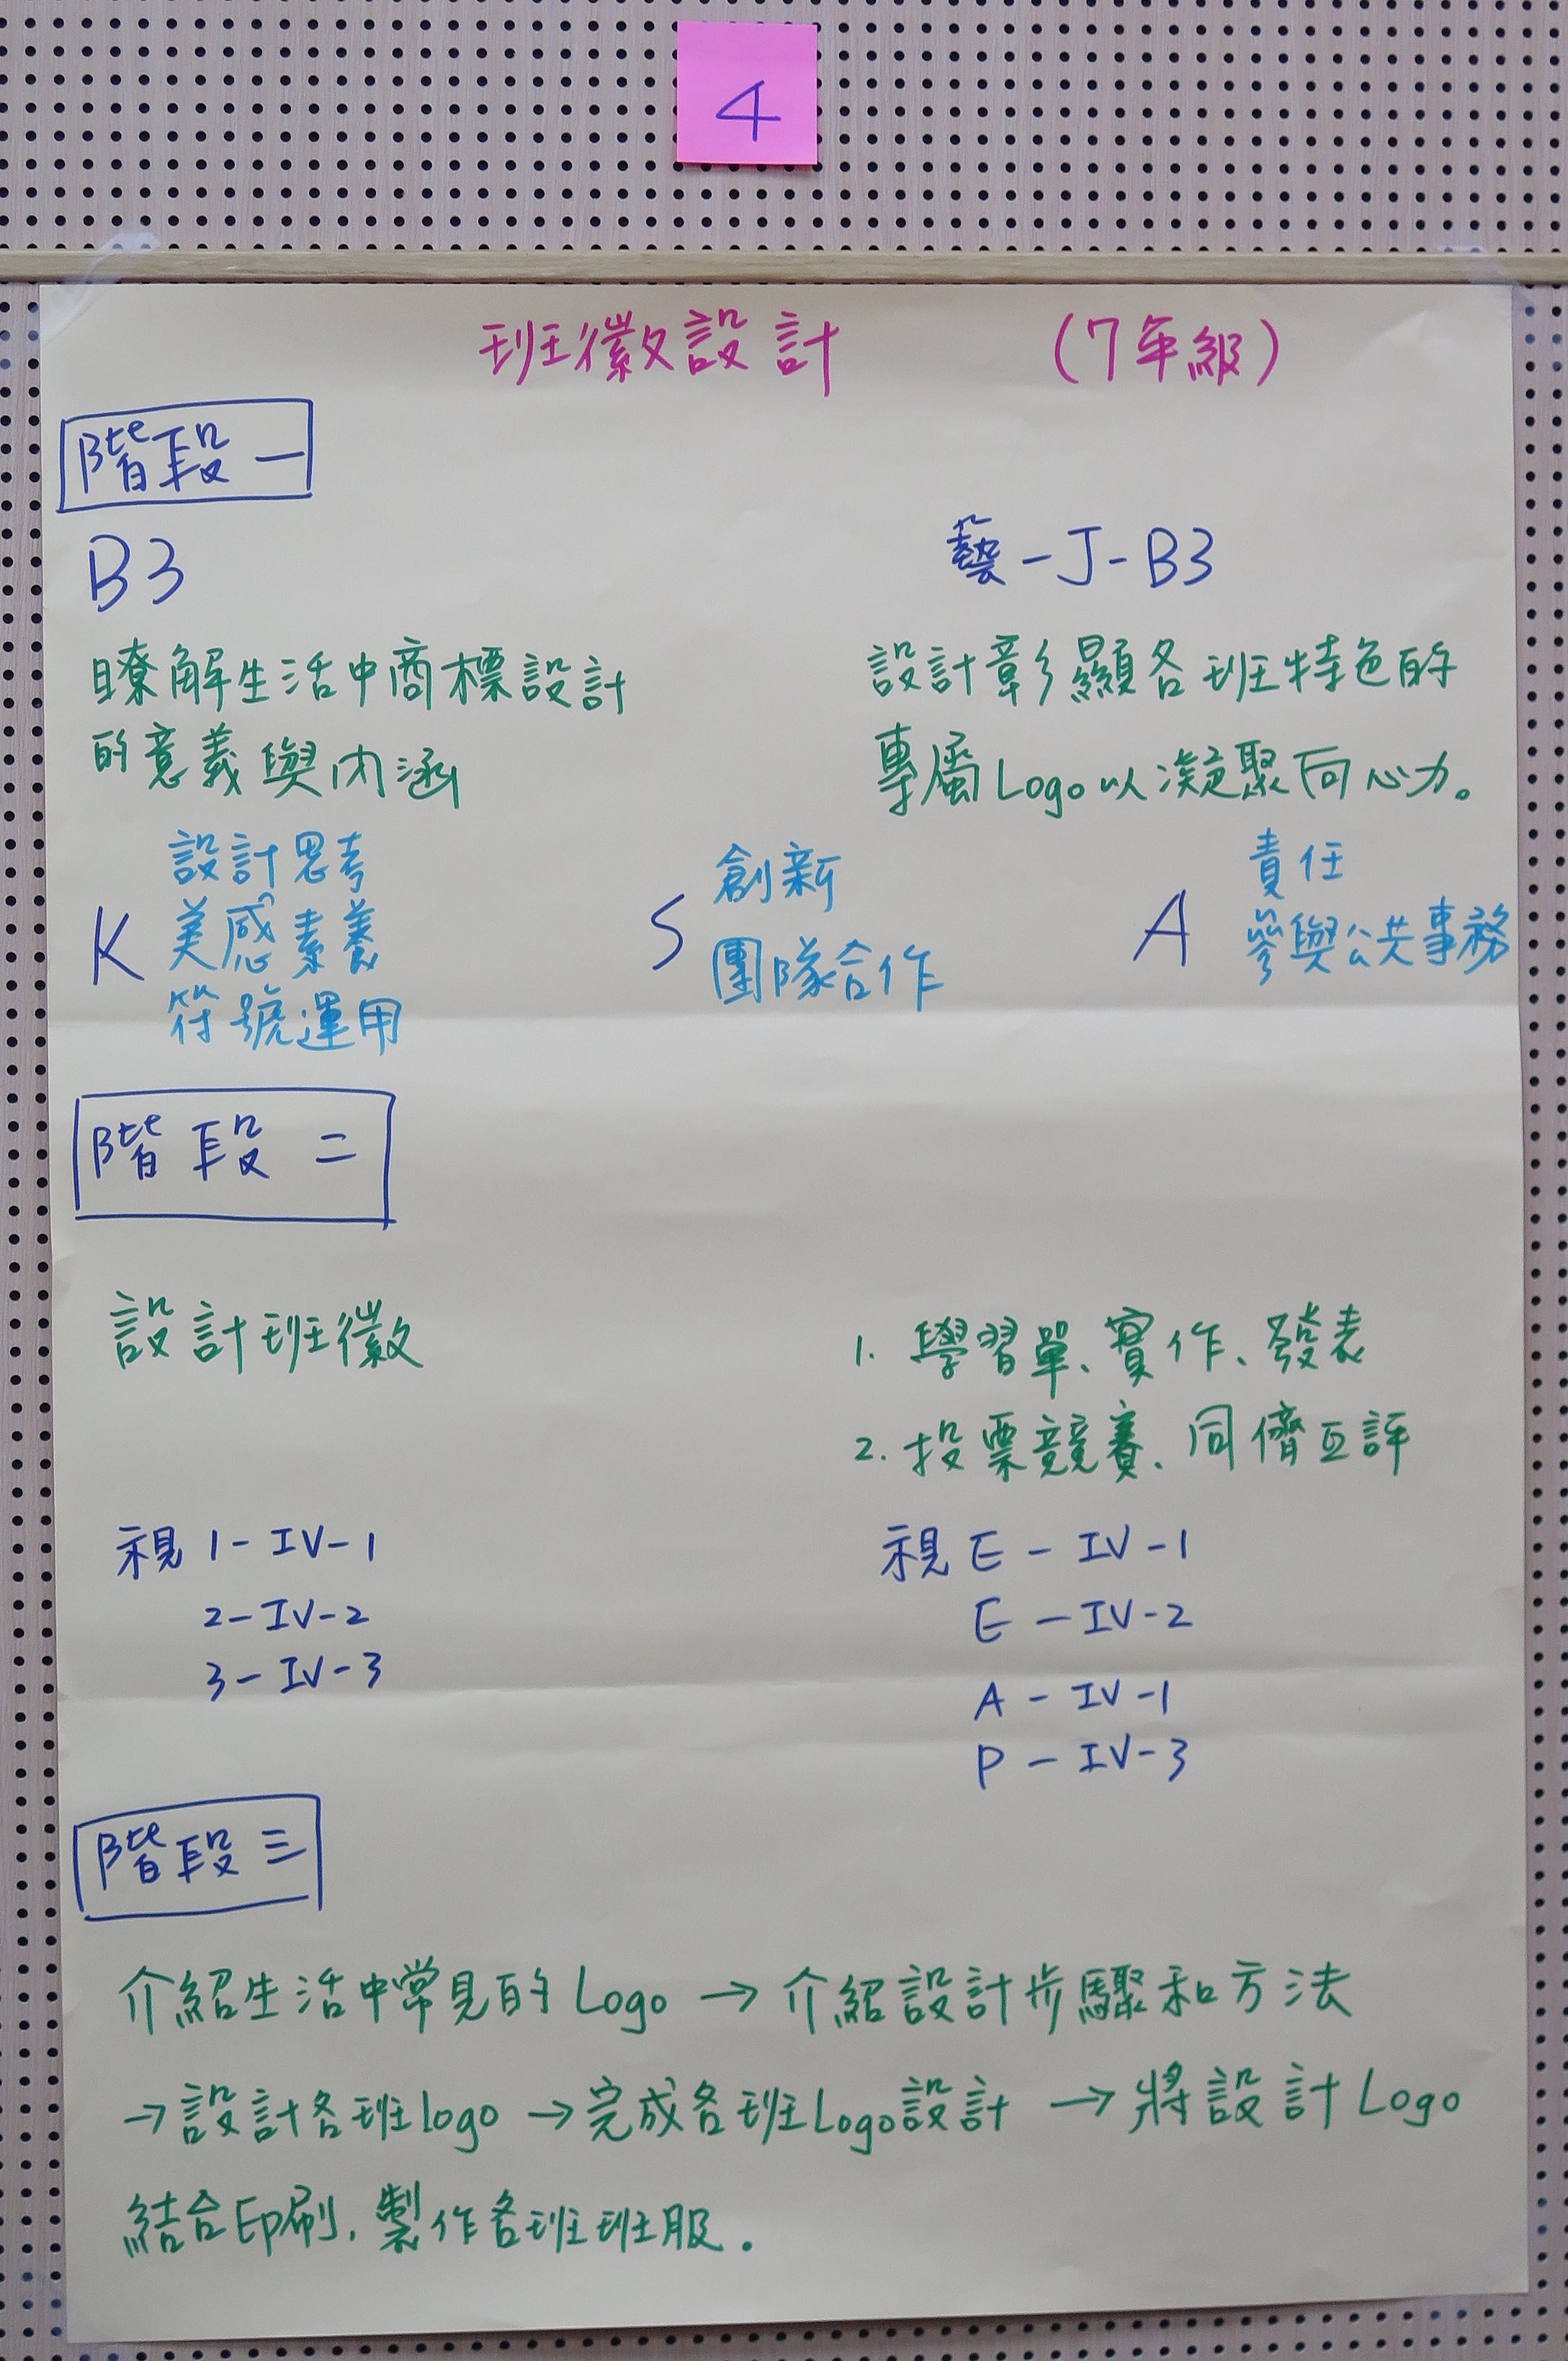 4
班徽設計 (7年級)
階段一
B3
瞭解生活中商標設計
的意義與內涵
藝-J-B3
設計彰顯各班特色的
專屬Logo以凝聚向心力。
K
設計思考
美感素養
符號運用
S
創新
團隊合作
A
責任
參與公共事務
階段二
設計班徽
1. 學習單、實作、發表
2. 投票競賽、同儕互評
視 1-IV-1
2-IV-2
3-IV-3
視 E-IV-1
E-IV-2
A-IV-1
P-IV-3
階段三
介紹生活中常見的Logo→介紹設計步驟和方法
→設計各班logo→完成各班Logo設計→將設計Logo
結合印刷,製作各班班服.